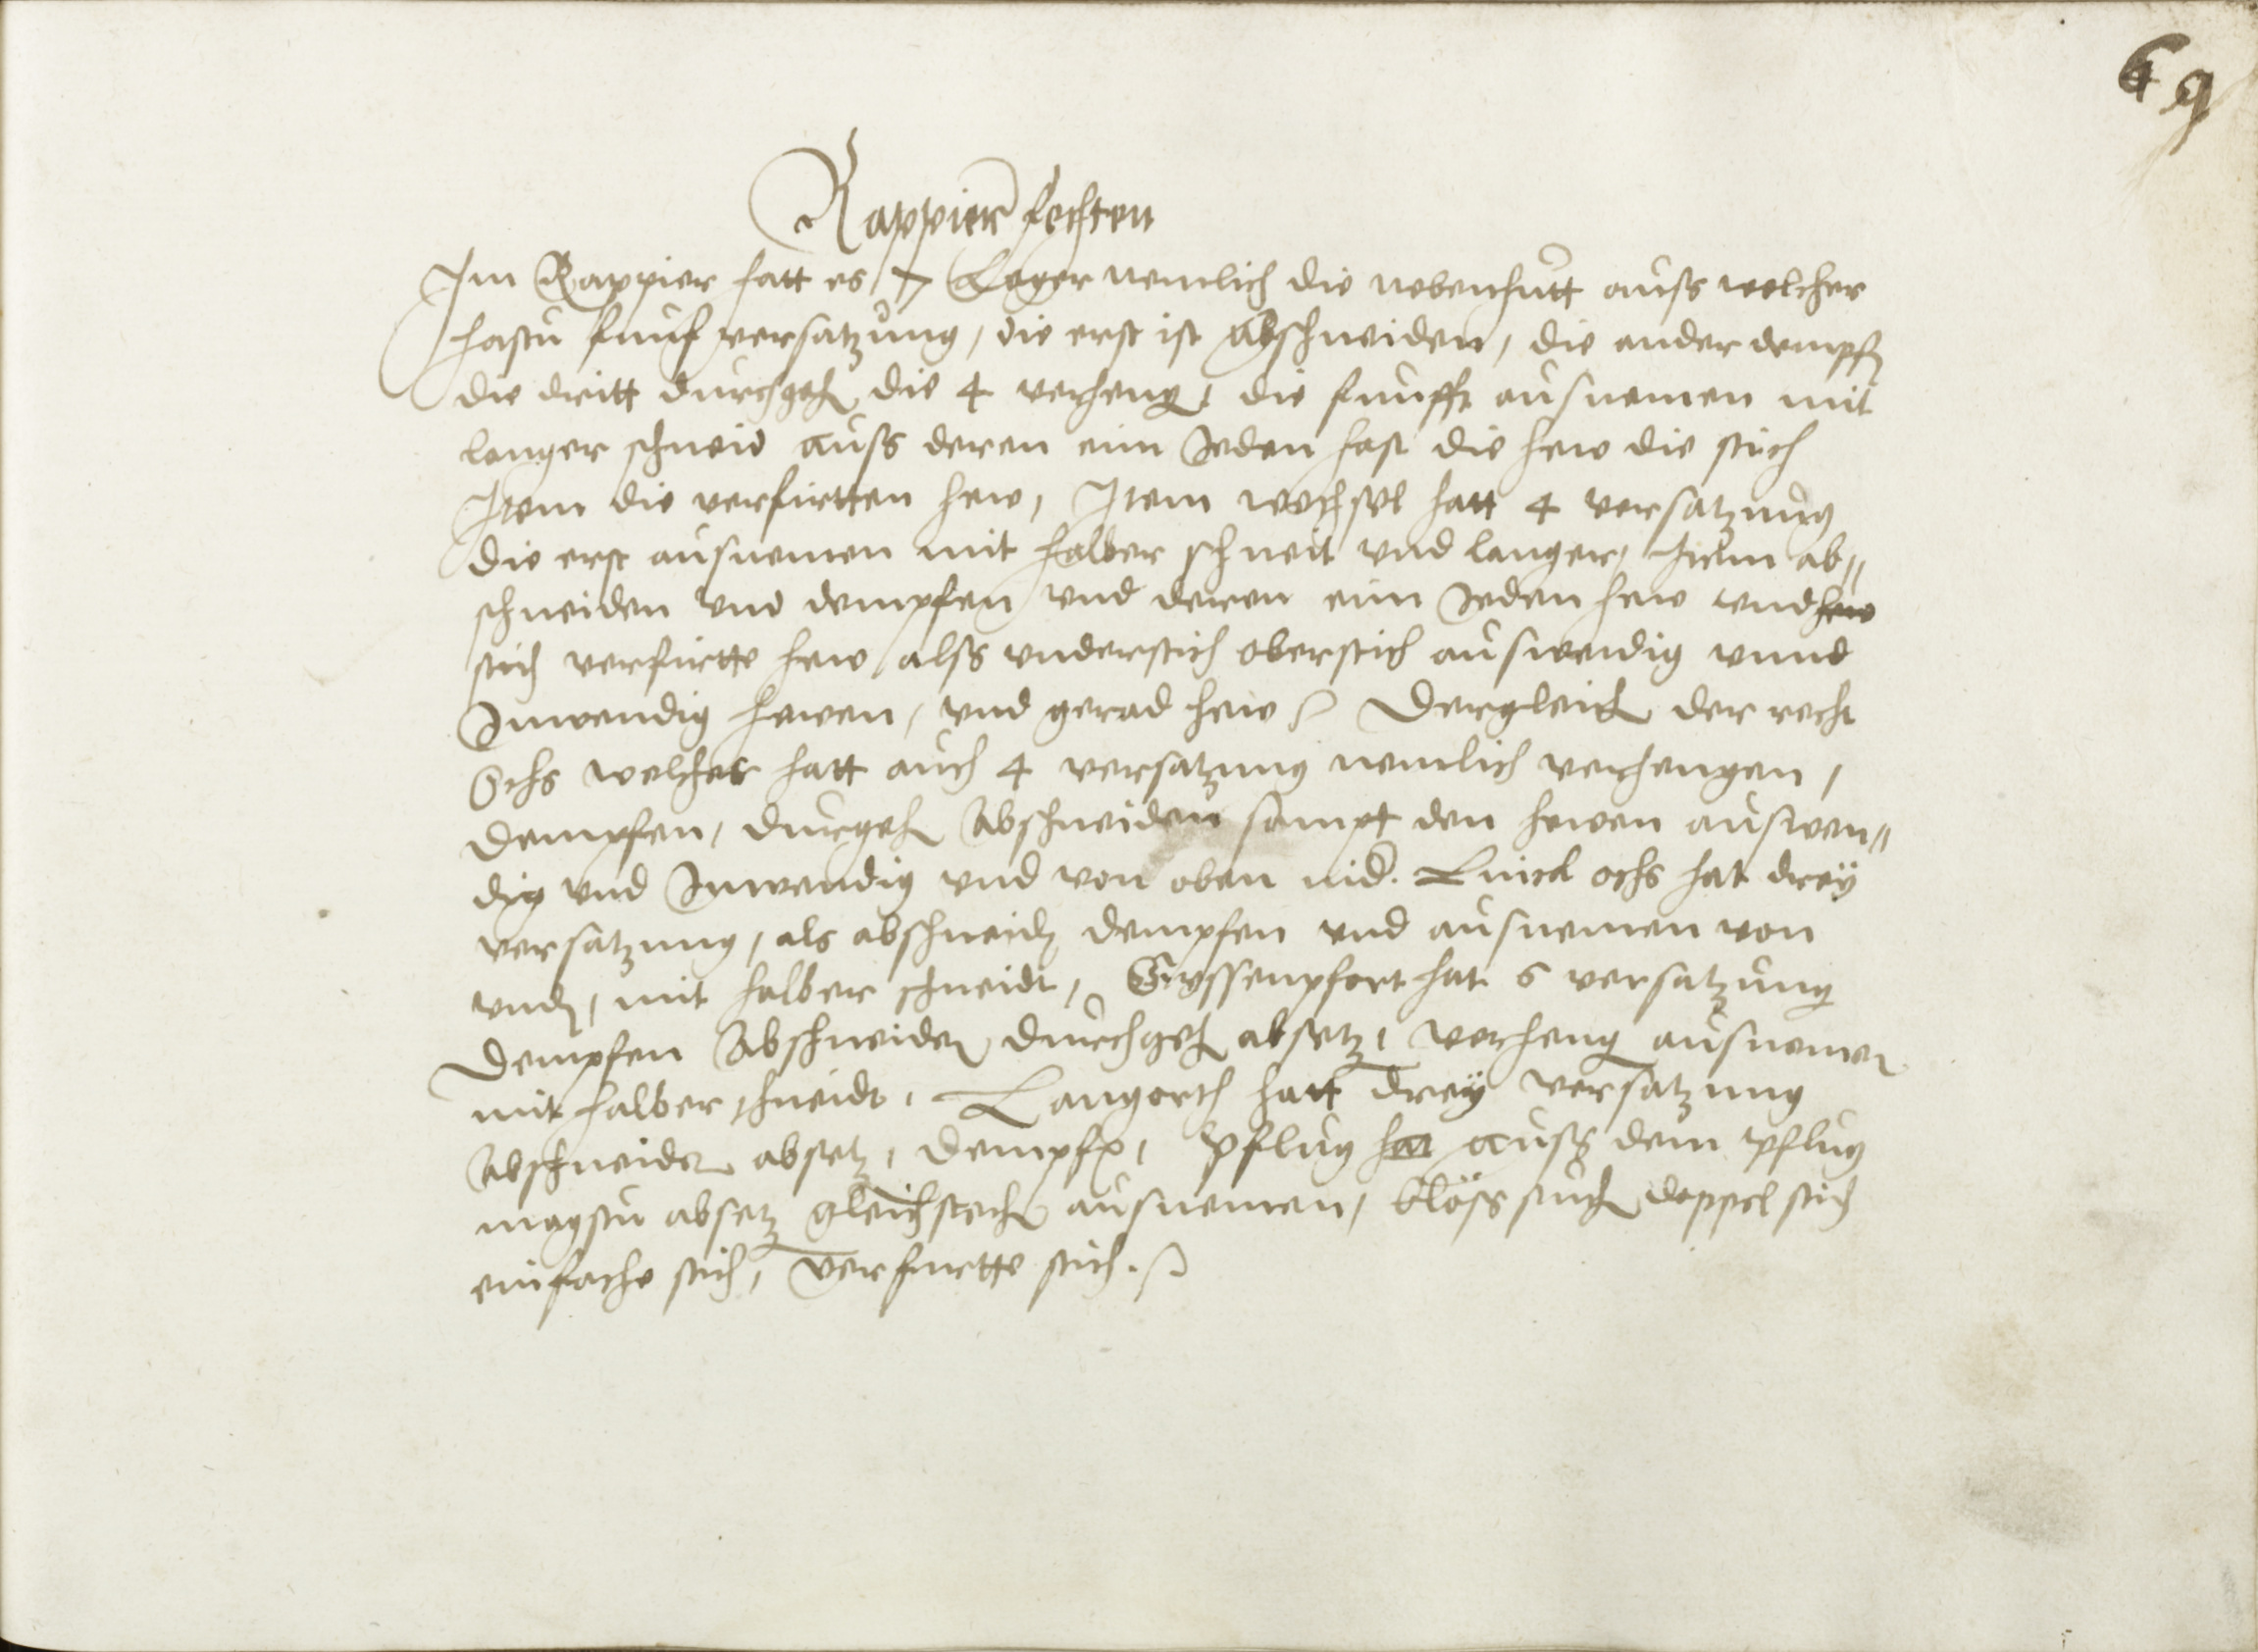 69
Rappier fechten
Im Rappier hatt es 7 Leger nemlich die nebenhutt auss welcher
hastu funf versatzung, die erst ist Abschneiden, die ander dempfen
die dritt durchgeh die 4 verheng, die funfft ausnemen mit
langer schneid auss deren eim Jeden hast die hew die stich
Item die verfurtten hew, Item wechsel hatt 4 versatzung
die erst ausnemen mit halber schneit vnd langer, Item ab„
schneiden vnd dempfen vnd deren eim Jeden hew vnd hew
stich verfurtte hew alss vnderstich oberstich auswendig vnnd
Inwendig hewen, vnd gerad hew Dergleich der recht
Ochs welcher hatt auch 4 versatzung nemlich verhengen,
Dempfen, durgeh Abschneiden sampt den hewen auswen„
dig vnd Inwendig vnd von oben nid. Linck ochs hat dreÿ
versatzung, als abschneid dempfen vnd ausnemen von
vnd, mit halber schneidt, Eyssenpfort hat 6 versatzung
Dempfen Abschneiden durchgeh absetz, verheng ausnemen
mit halber schneidt, Langorth hatt dreÿ versatzung
Abschneiden absetz, dempfen, Pflug hat auss dem pflug
magstu absetz gleichstech ausnemen, blöss such doppel stich
einfache stich, verfurtte stich.